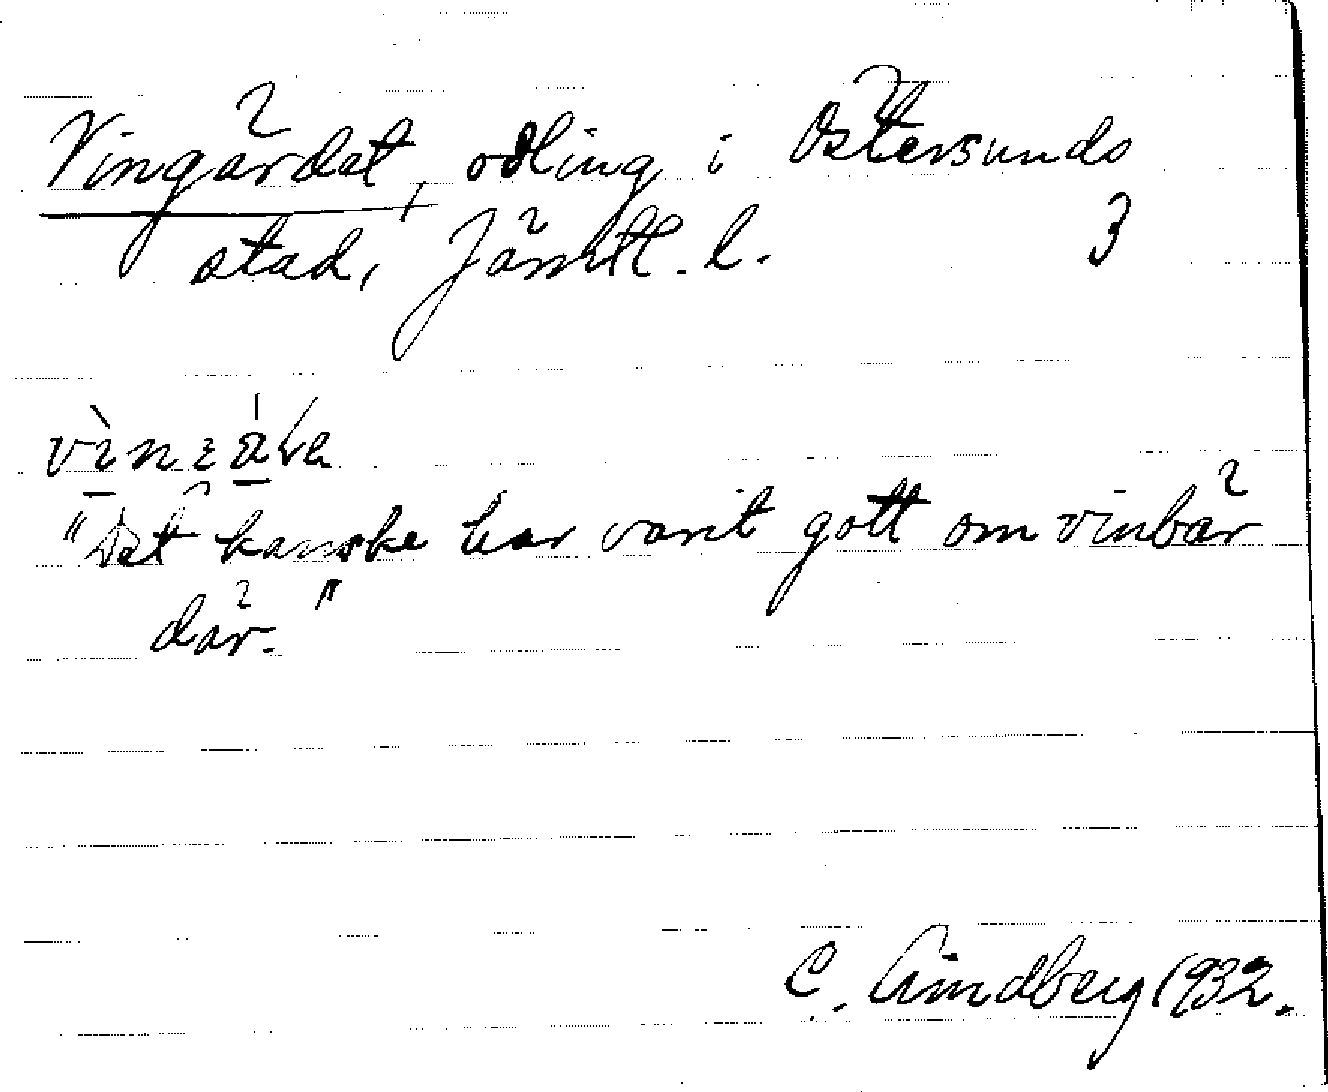 Vingärdet, odling i Östersunds
stad, Jämtl. l. 3
"Det kanske har varit gott om vinbär
där."
C. Lindberg 1932.